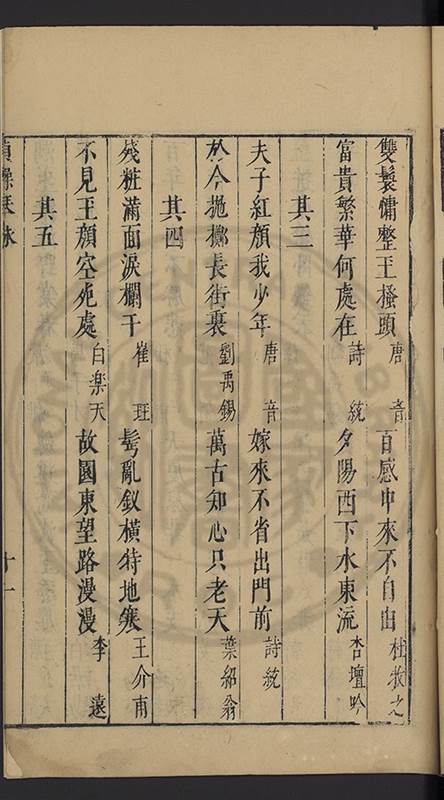 雙鬟慵整玉搔頭 唐音 百感中來不自由 杜牧之
富貴繁華何處在 詩統 夕陽西下水東流 杏壇吟
其三
夫子紅顏我少年 唐音 嫁來不省出門前 詩統
於今拋擲長街裏 劉禹錫 萬古知心只老天 葉紹翁
其四
殘粧滿面淚闌干 崔珏 髩亂釵橫特地寒 王介甫
不見玉顏空死處 白樂天 故園東望路漫漫 李遠
其五
十一